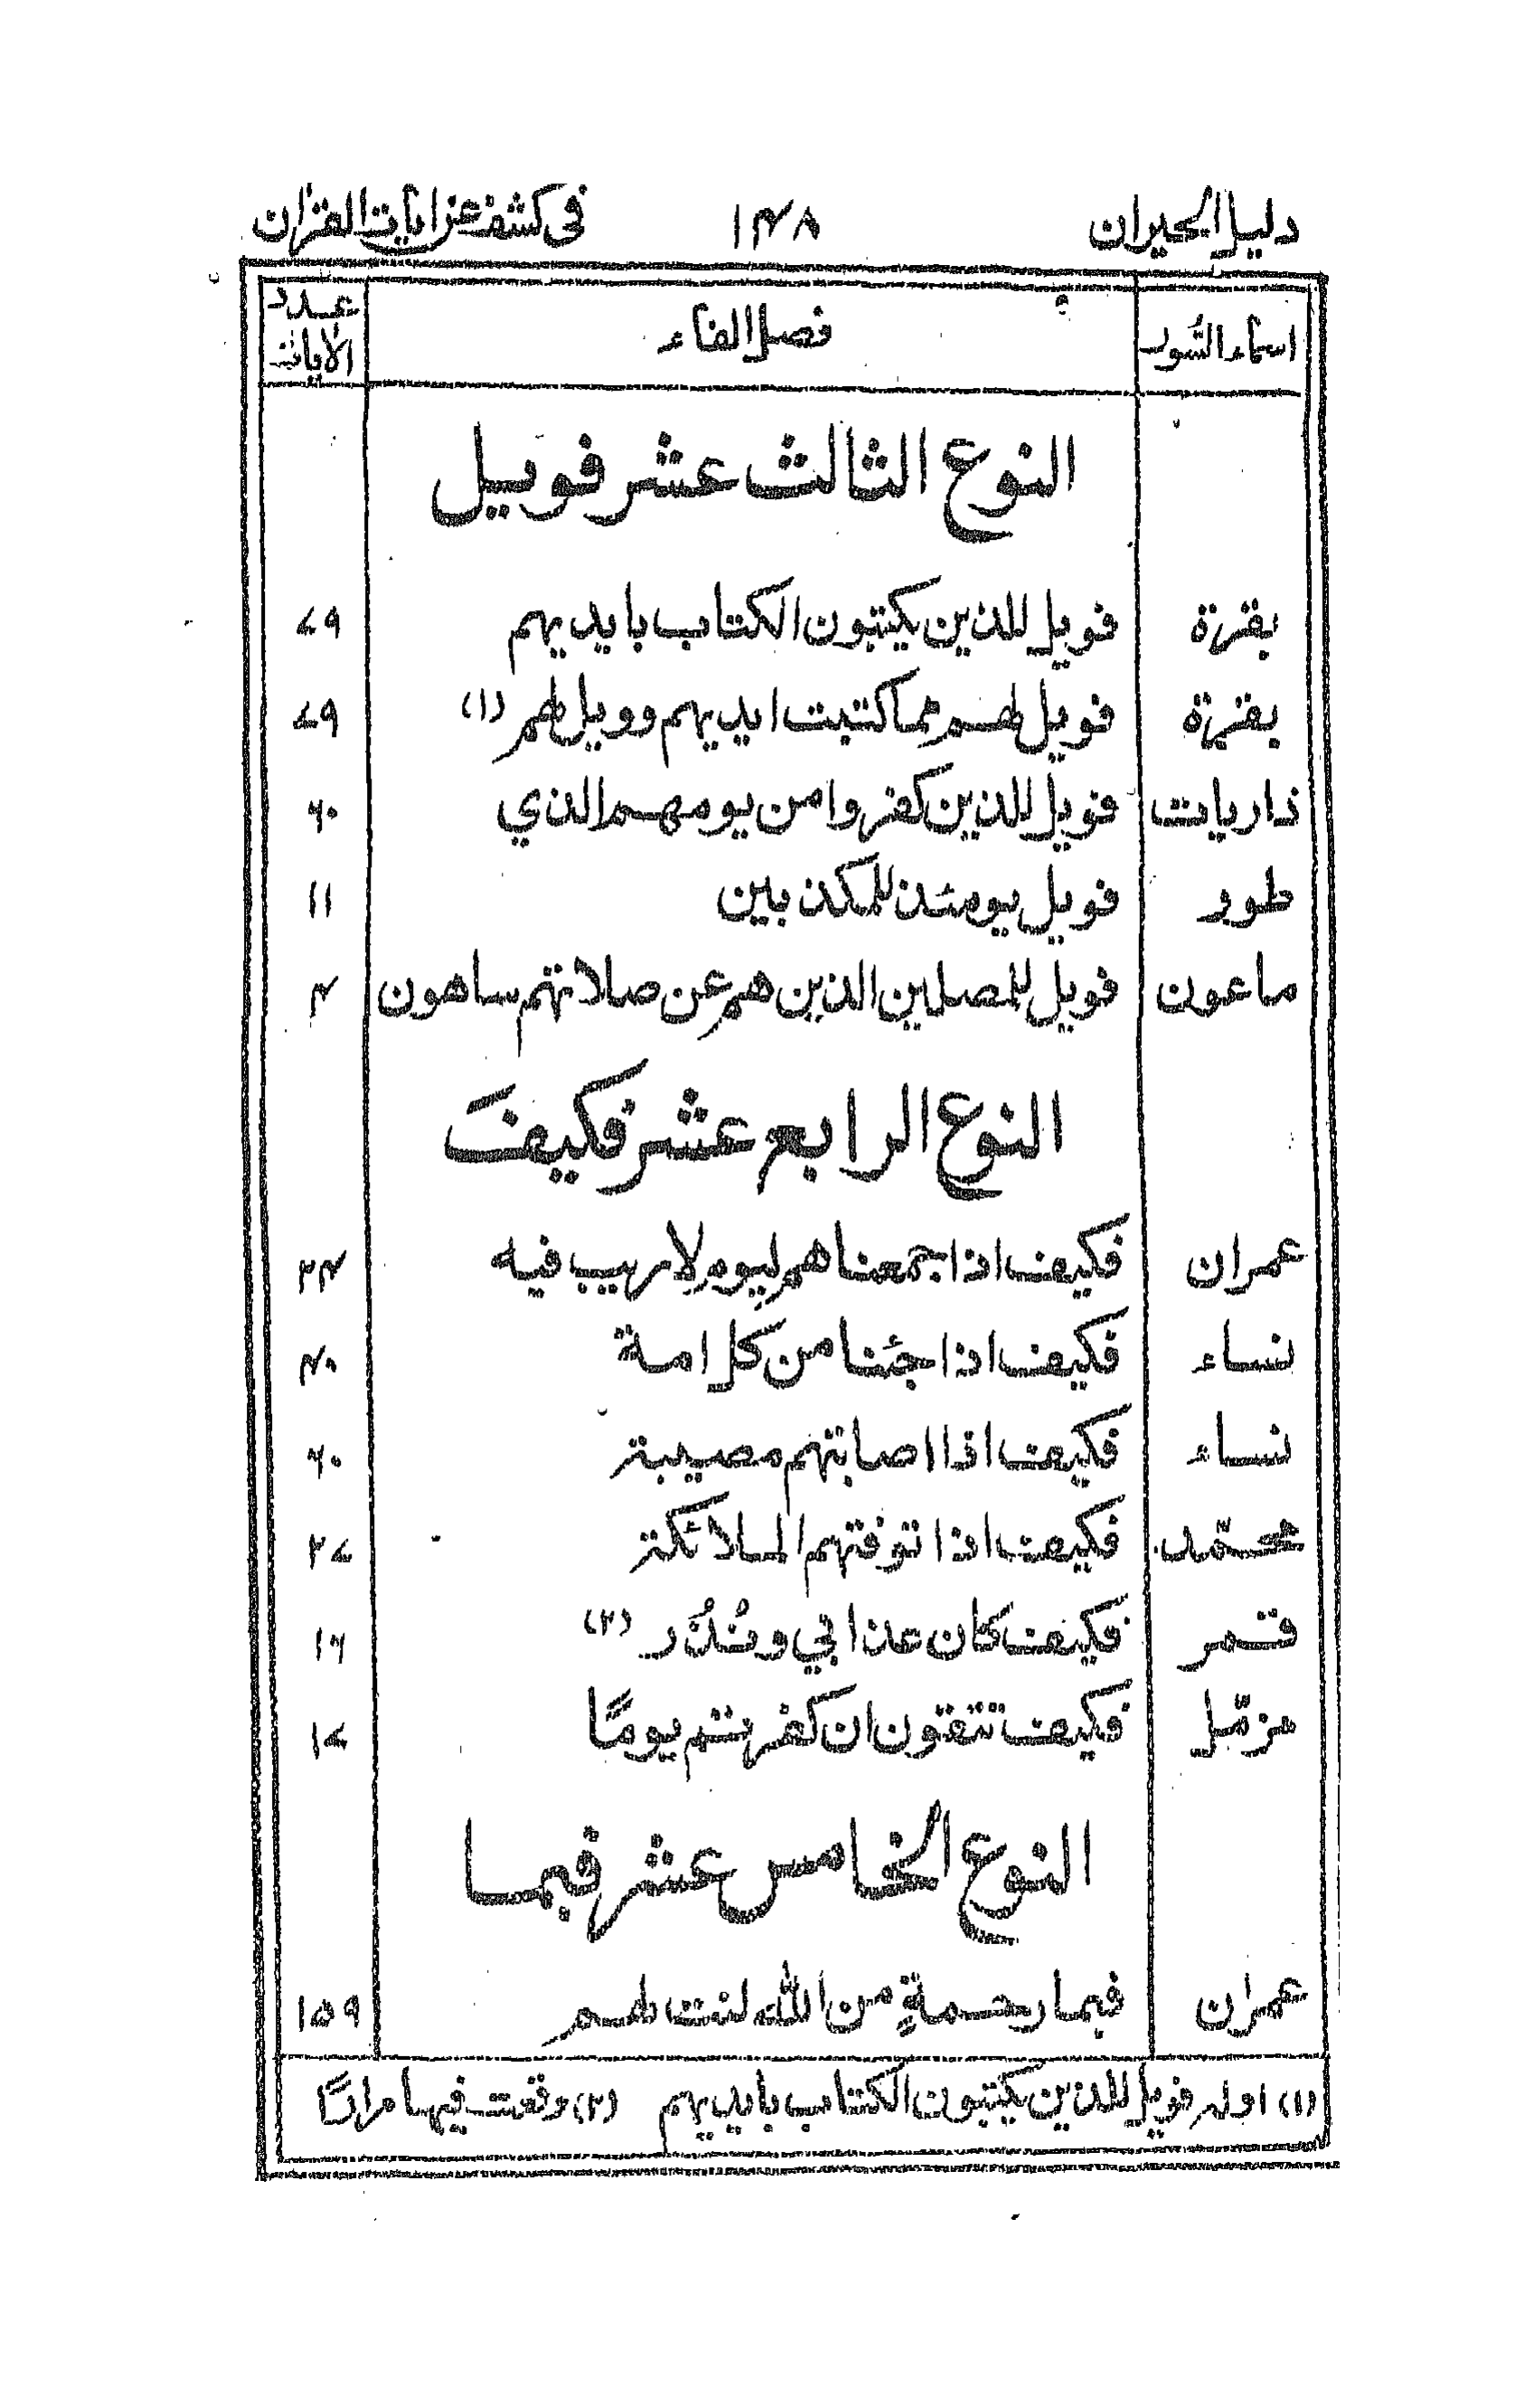 دليل الحيران ١٤٨ في كشف عن اٰيات القراٰن
اسماء السُّور فصل الفاء عدد الاٰيات
النوع الثالث عشر فويل
بقرة فويل للذين يكتبون الكتاب بايديهم ٧٩
بقرة فويل لهم مما كتبت ايديهم وويل لهم (١) ٧٩
ذاريات فويل للذين كفروا من يومهم الذي ٦٠
طور فويل يومئذ للمكذبين ١١
ماعون فويل للمصلين الذين هم عن صلاتهم ساهون ٤
النوع الرابع عشر فكيفَ
عمران فكيف اذا جمعناهم ليوم لا ريب فيه ٢٤
نساء فكيف اذا جئنا من كل امة ٤٠
نساء فكيف اذا اصابتهم مصيبة ٦٠
محمّد فكيف اذا توفتهم الملائكة ٢٧
قمر فكيف كان عذابي ونُذُر (٢) ١٦
مزمّل فكيف تتقون ان كفرتم يومًا ١٧
النوع الخامس عشر فبما
عمران فبما رحمةٍ من الله لنت لهم ١٥٩
(١) اوله فويل للذين يكتبون الكتاب بايديهم (٢) وقعت فيها مرارًا